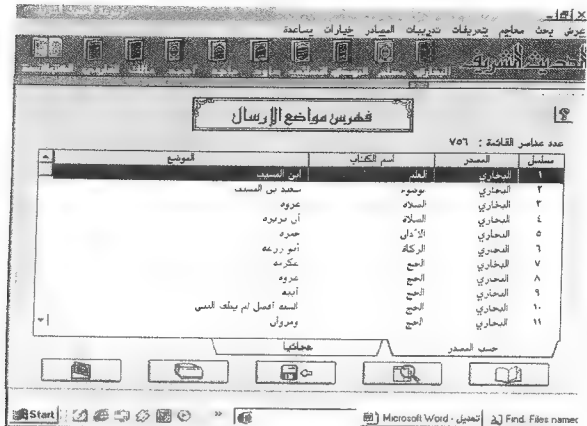 عرض بحث معاجم تعريفات تدريبات المصادر خيارات يساعدة
الحديث الشريف
فهرس مواضع الإرسال
عدد عناصر القائمة : ٧٥٦
مسلسل المصدر اسم الكتاب الموضع
١ البخاري العلم ابن المسيب
٢ البخاري الوضوء سعيد بن المسيب
٣ البخاري الصلاة عروه
٤ البخاري الصلاة
٥ البخاري الأذان حمزه
٦ البخاري الزكاة أبو زرعه
٧ البخاري الحج عكرمه
٨ البخاري الحج عروه
٩ البخاري الحج أبيه
١٠ البخاري الحج السنه أفضل لم يطف النبي
١١ البخاري الحج ومروان
حسب المصدر هجائيا
Start » Microsoft Word - تعديل Find. Files named